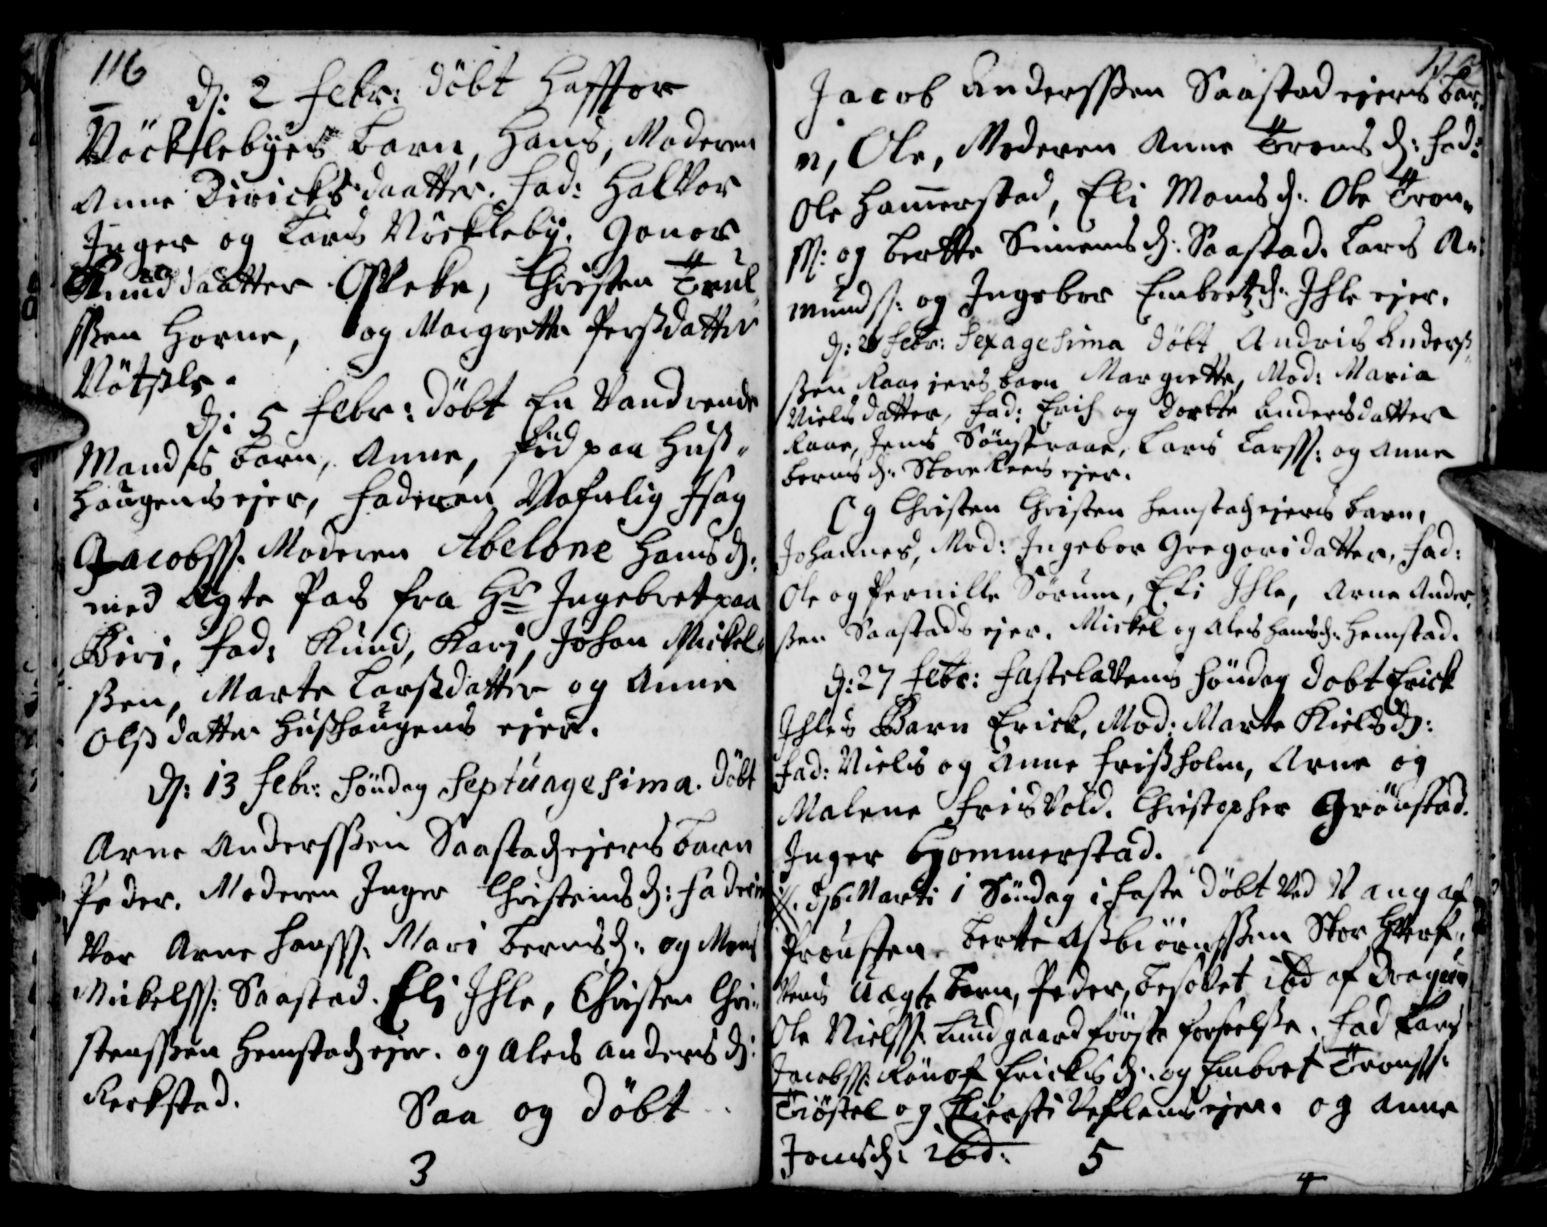 116
d: 2 Febr: döbt Haffvor
Nöcklebyes barn, Hans, Moderen
Anne Diricksdaatter. Fad: Halvor
Inger og Lars Nöckleby. Gonor
Knuddaatter Opsebe, Christen Trul
ssen Horne, og Margrette Persdatter
Nötsle.
d: 5 Febr: döbt En Vandrende
Mandss barn, Anne, föd paa Huss-
haugens ejer, Faderen Nafnlig Isag
Jacobss. Moderen Abelone Hansd:
med ægte Pas fra Hr Ingebret paa
Biri, Fad: Knud, Kari, Johan Mickel-
ssen, Marte Larsdatter og Anne
Olsdatter Husshaugens ejer.
d: 13 Febr: Söndag Septuagesima. Döbt
Arne Anderssen Saastadejers barn
Peder. Moderen Inger Christensd: Faderne
var Arne Hanss. Mari Berntsd: og Mons
Mickelss: Saastad. Eli Ihle, Christen Chri-
stenssen Hemstadejer. og Aleds Andersd:
Kerkstad.
Saa og döbt
3
Jacob Anderssen Saastadejers bar-
n, Ole, Moderen Anne Tronsd: Fad:
Ole Hamerstad, Eli Monsd: Ole Tron-
ss: og Berthe Simensd: Saastad. Lars A-
mundss: og Ingebor Embretzd: Ihle ejer.
d: 20 Febr: Sexagesima döbt Andris Anders-
sen Raaejers barn Margrette, Mod: Maria
Nielsdatter, Fad: Erich og Dorthe Andersdatter
Raae, Jens Sönstraae, Lars Larss: og Anne
Berntsd: Store Reensejer.
Og Christen Christen Hemstadejers barn,
Johannes, Mod: Ingebor Gregoridatter, Fad:
Ole og Pernille Sörum, Eli Ihle, Arne Ander-
ssen Saastadsejer. Mickel og Aleis Hansd: Hemstad.
d: 27 Febr: Fastelavens Söndag döbt Erick
Ihles Barn Erick, Mod: Marte Kielsd:
Fad: Niels og Anne Frissholm, Arne og
Malene Frisvold. Christopher Grönstad.
Inger Hommerstad.
d: 6 Marti 1 Söndag i Faste döbt ved Vang af
Prousten Berte Assbiörnssen Stor Hverf-
vens Uægte barn, Peder, besovet ibd af Dragun
Ole Nielss: Lundgaard förste forseelse. Fad Lars
Jacobss: Rönof Ericksd: og Embret Tronss:
Tiöstel og Kiersti Veflensejer. og Anne
Jonsd: ibd:
5
4